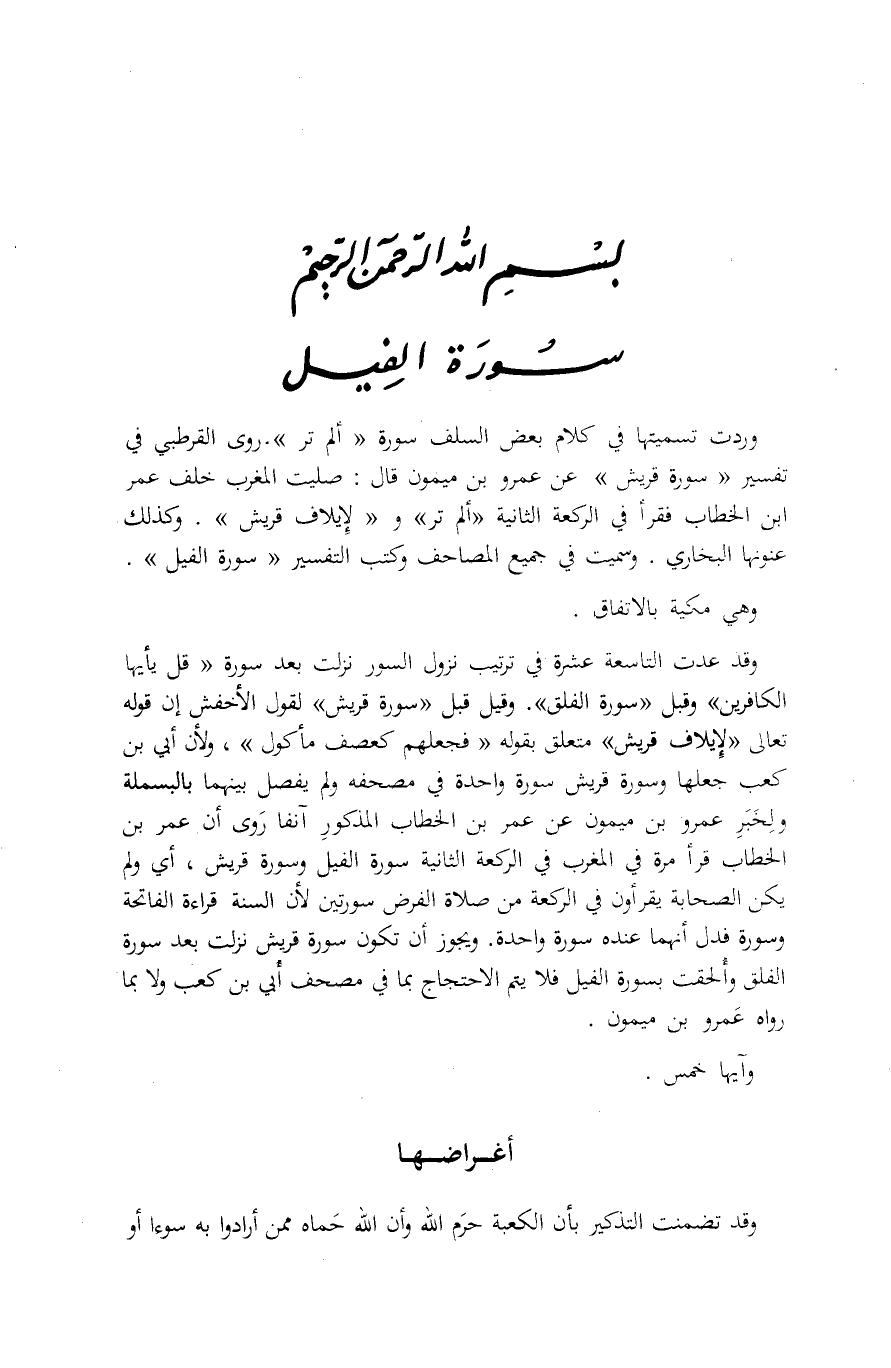 بِسْمِ اللهِ الرَّحْمٰنِ الرَّحِيْمِ
سُورَة الفِيل
وردت تسميتها في كلام بعض السلف سورة « ألم تر ».روى القرطبي في
تفسير « سورة قريش » عن عمرو بن ميمون قال : صليت المغرب خلف عمر
ابن الخطاب فقرأ في الركعة الثانية «ألم تر» و « لإِيلاف قريش » . وكذلك
عنونها البخاري . وسميت في جميع المصاحف وكتب التفسير « سورة الفيل » .
وهي مكية بالاتفاق .
وقد عدت التاسعة عشرة في ترتيب نزول السور نزلت بعد سورة « قل يأيها
الكافرين» وقبل «سورة الفلق». وقيل قبل «سورة قريش» لقول الأخفش إن قوله
تعالى «لإِيلاف قريش» متعلق بقوله « فجعلهم كعصف مأكول » ، ولأن أبي بن
كعب جعلها وسورة قريش سورة واحدة في مصحفه ولم يفصل بينهما بالبسملة
ولِخَبَرِ عمرو بن ميمون عن عمر بن الخطاب المذكورِ آنفا رَوى أن عمر بن
الخطاب قرأ مرة في المغرب في الركعة الثانية سورة الفيل وسورة قريش ، أي ولم
يكن الصحابة يقرأون في الركعة من صلاة الفرض سورتين لأن السنة قراءة الفاتحة
وسورة فدل أنهما عنده سورة واحدة. ويجوز أن تكون سورة قريش نزلت بعد سورة
الفلق وأُلحقت بسورة الفيل فلا يتم الاحتجاج بما في مصحف أُبي بن كعب ولا بما
رواه عَمرو بن ميمون .
وآيها خمس .
أغـراضـهـا
وقد تضمنت التذكير بأن الكعبة حرَم الله وأن الله حَماه ممن أرادوا به سوءا أو